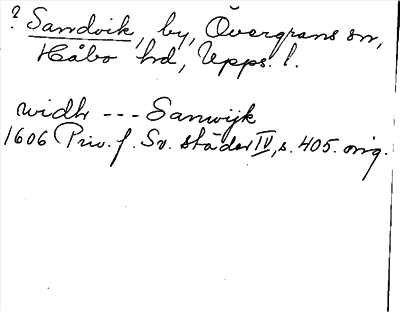 ? Sandvik, by, Övergrans sn,
Håbo hd, Upps. l.
widh --- Sanwijk
1606 Priv. f. Sv. städer IV, s. 405. orig.